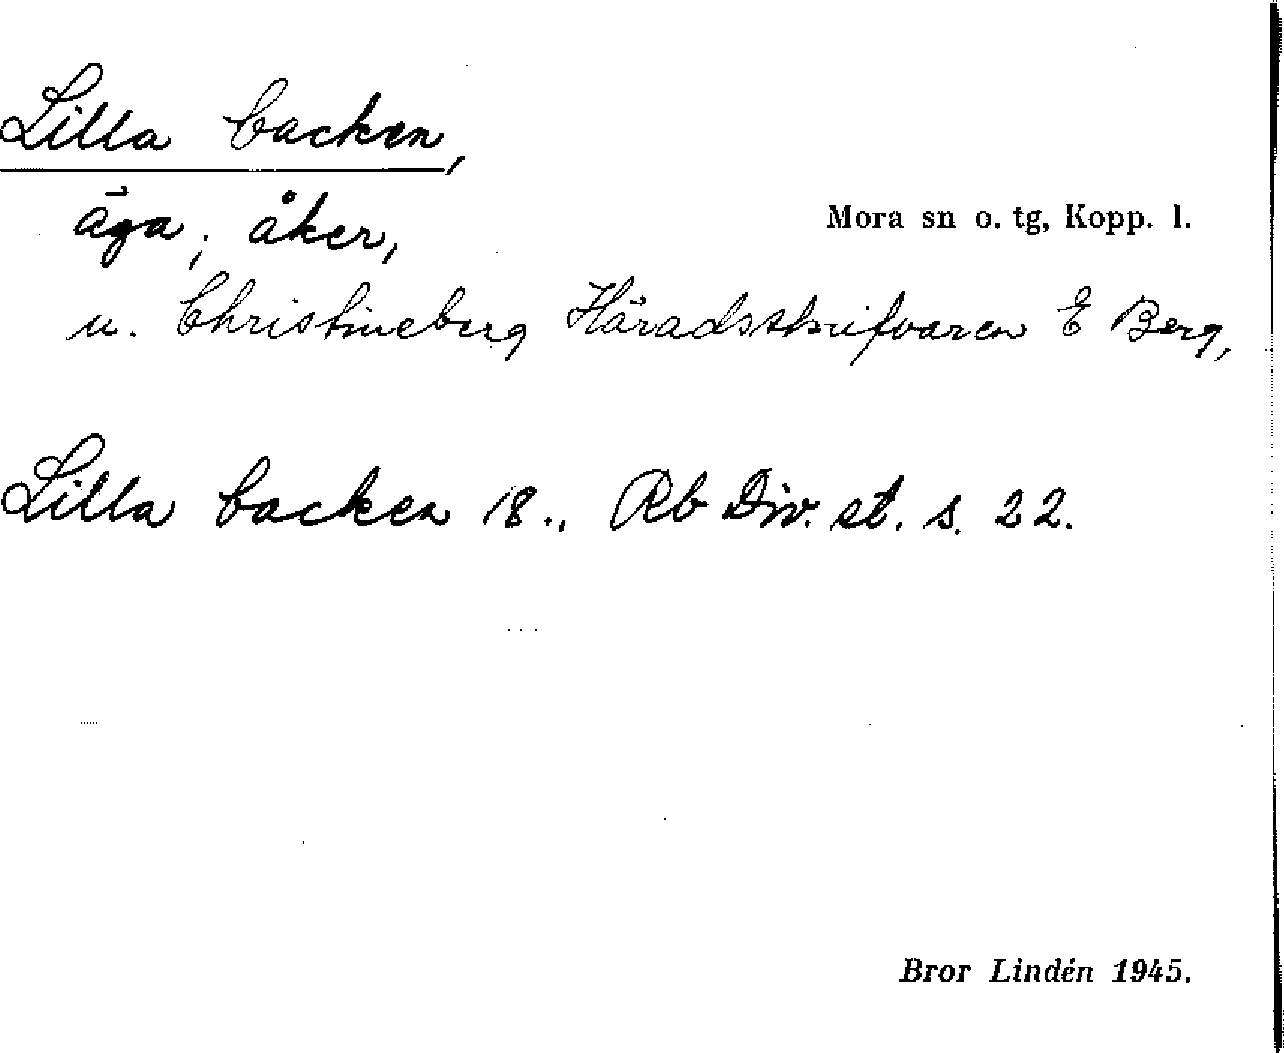 Lilla backen,
äga; åker,
Mora sn o. tg, Kopp. l.
u. Christineberg Häradsskrifvaren E Berg,
Lilla backen 18.. Rb Div. st. s. 22.
Bror Lindén 1945.